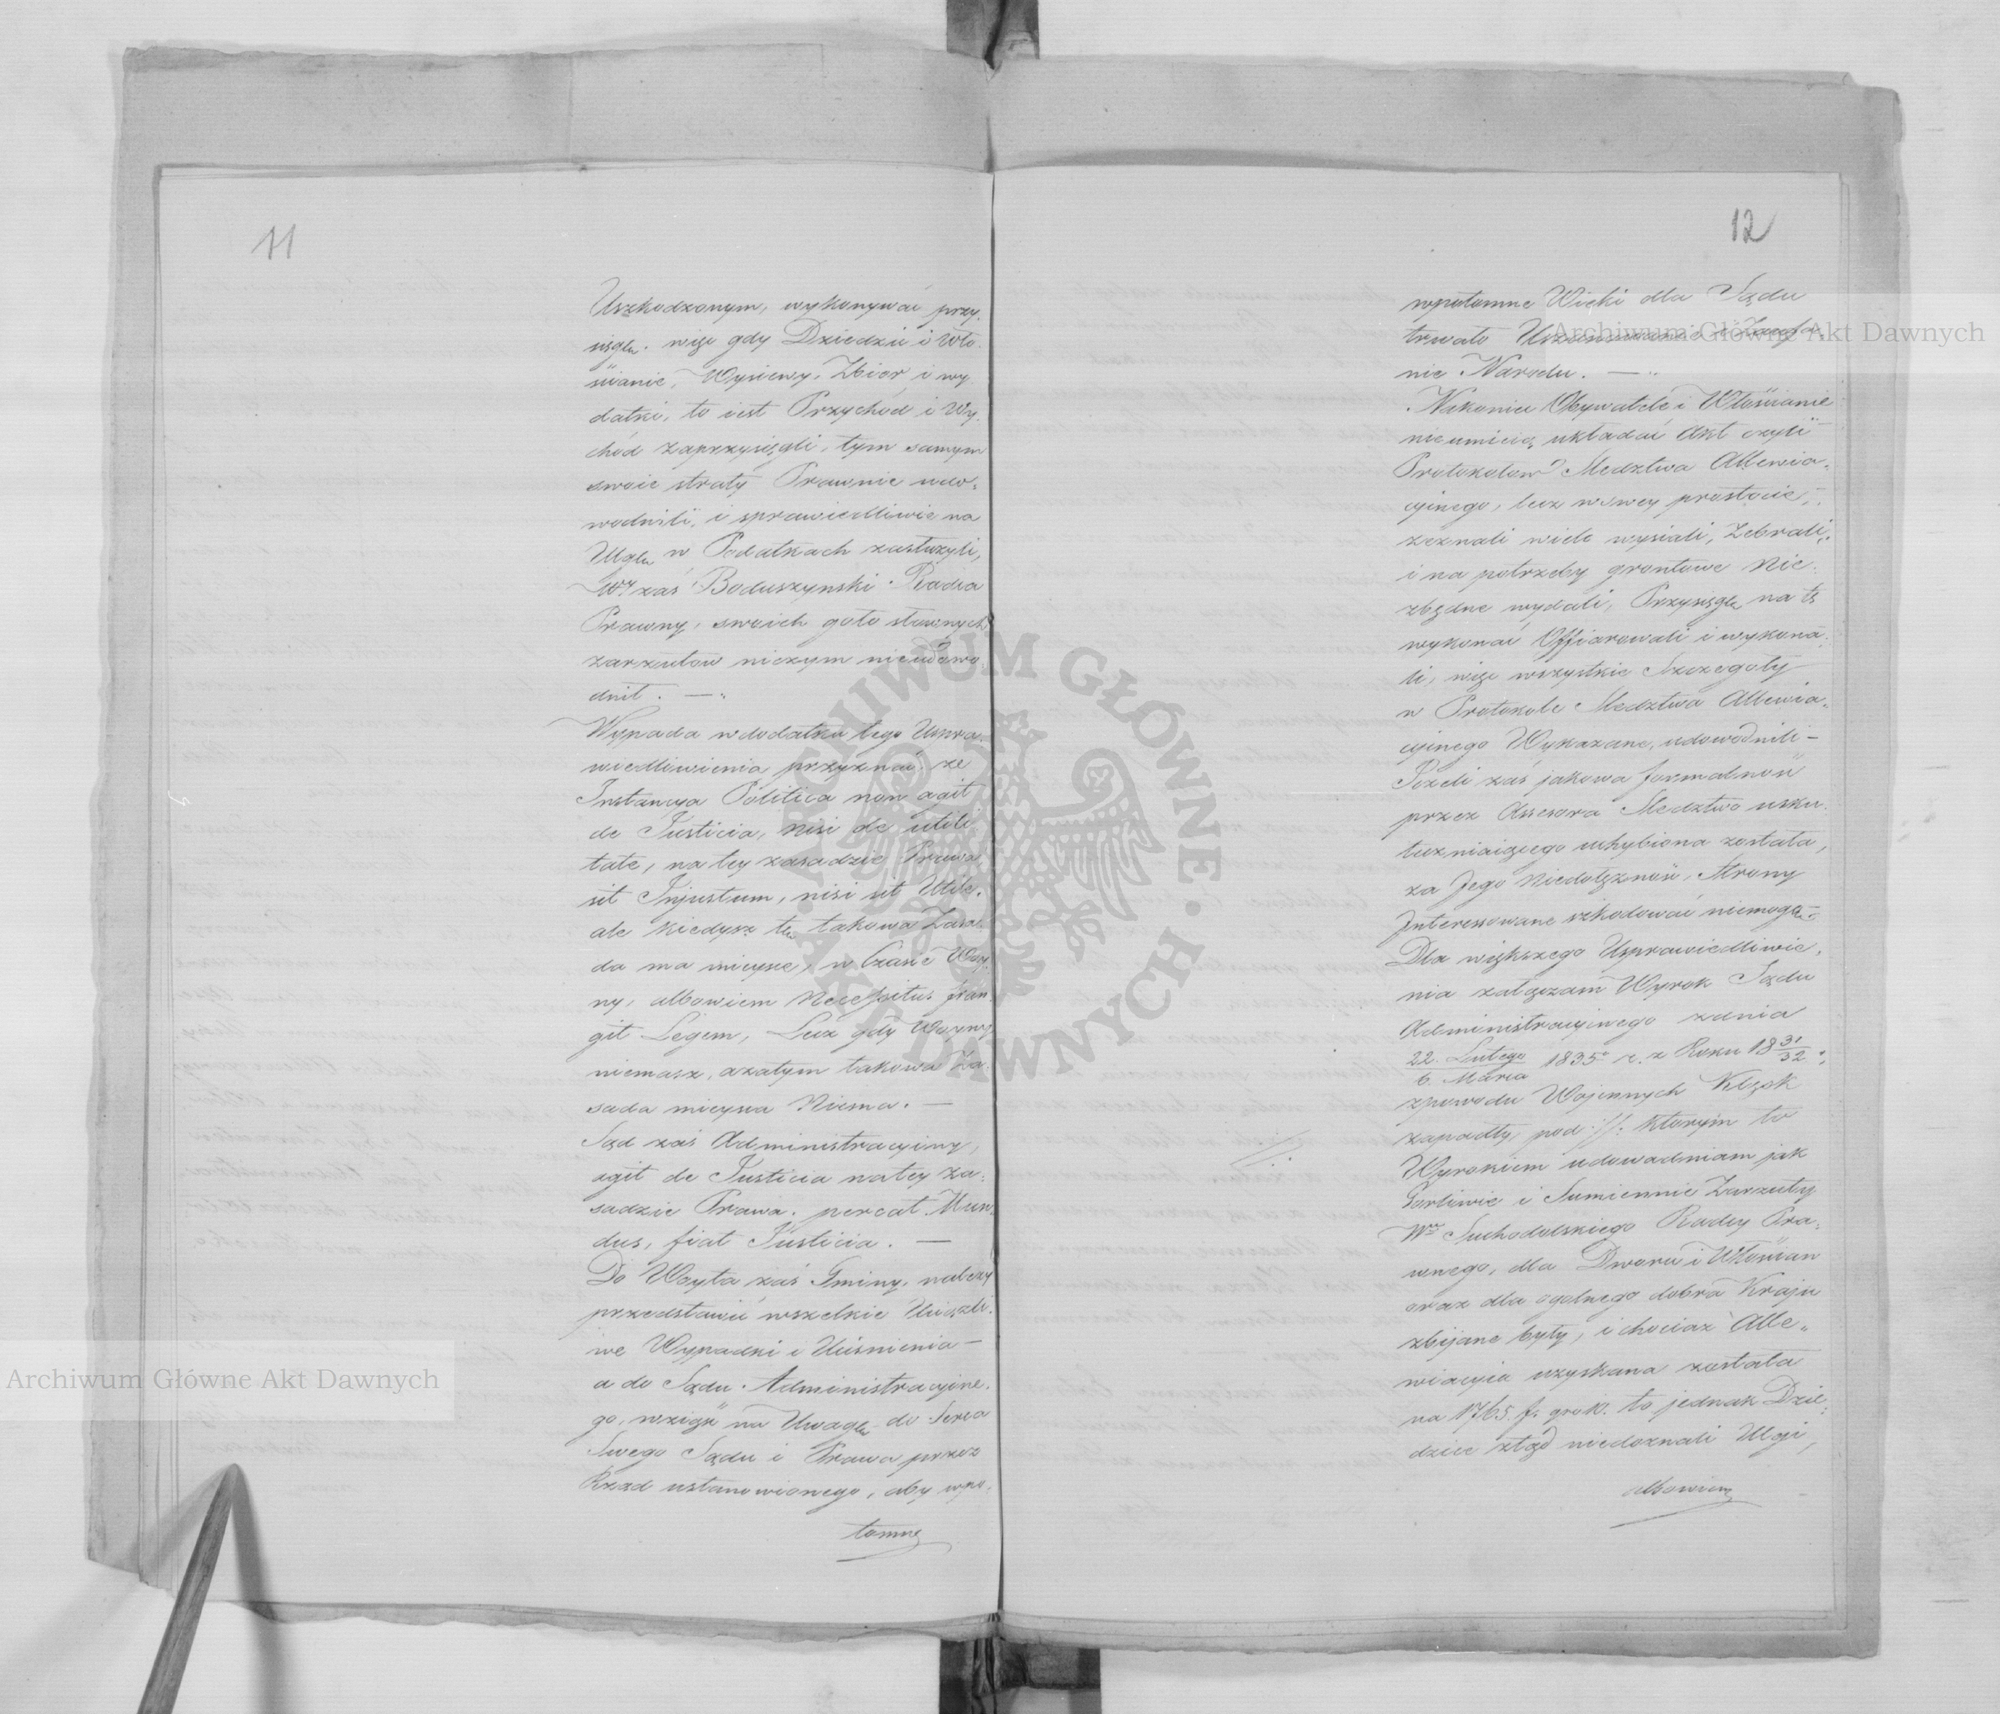 11
Uszkodzonym, wykonywać przy,
sięgę. więc gdy Dziedzic i Wło,
ścianie, Wysiewy, Zbior, i wy
datki, to iest Przychód i Wy,
chód zaprzysięgli, tym samym
swoie straty Prawnie udo,
wodnili, i sprawiedliwie na
Ulgę w Podatkach zasłużyli,
Wy zaś Boduszynski Radca
Prawny, swoich goło słownych
zarzutów niczym nieudowo,
dnił. —
Wypada w dodatku tego Uspra,
wiedliwienia przyznać że
Instancya Politica non agit
de Justicia, nisi de utili
tate, na tey zasadzie Prawa,
sit Injustum, nisi sit Utile.
ale kiedysz tę takowa Zasa,
da ma mieysce, w Czasie Woy,
ny, albowiem Necessitas fran
git Legem, Lecz gdy Woyny
niemasz, a zatym takowa Za,
sada mieysca Niema. —
Sąd zaś Administracyiny,
agit de Justicia na tey za,
sadzie Prawa. pereat Mun,
dus, fiat Justicia. —
Do Woyta zaś Gminy, należy
przedstawić wszelkie Uciążli,
we Wypadki i Uciśnienia —
a do Sądu Administracyine,
go, wziąść na Uwagę do Serca
Swego Sądu i Prawa przez
Rząd ustanowionego, aby wpo,
tomne
12
wpotomne Wieki dla Sądu
trwało Uszanowanie i Zaufa,
nie Narodu. —
Nakoniec Obywatele i Włościanie
nieumieią układać Akt czyli
Protokołow Śledztwa Allewia,
cyinego, lecz w swey prostocie,
zeznali wiele wysiali, Zebrali,
i na potrzeby grontowe Nie,
zbędne wydali, Przysięgę na to
wykonać Offiarowali i wykona,
li, więc wszystkie Szczegoły
w Protokole Śledztwa Allewia,
cyinego Wykazane, udowodnili —
Jeżeli zaś jakowa formalność
przez Assesora Śledztwo usku,
teczniaiącego uchybiona została,
za Jego Niedołężność, Strony
Interessowane szkodować niemogą.
Dla większego Usprawiedliwie,
nia załączam Wyrok Sądu
Administracyinego z dnia
22. Lutego / 6. Marca 1835 r. z Roku 18 31/32
z powodu Wojennych Klęsk
zapadły, pod //. ktorym to
Wyrokiem udowadniam jak
Gorliwie i Sumiennie Zarzuty
Wo Suchodolskiego Radcy Pra,
wnego, dla Dworu i Włościan
oraz dla ogolnego dobra Kraju
zbijane były, i chociaż Alle,
wiacyia uzyskana została
na 1765 f. gr 10. to jednak Dzie,
dzice ztąd niedoznali Ulgi,
albowiem
//.
Archiwum Główne Akt Dawnych
Archiwum Główne Akt Dawnych
ARCHIWUM GŁÓWNE AKT DAWNYCH